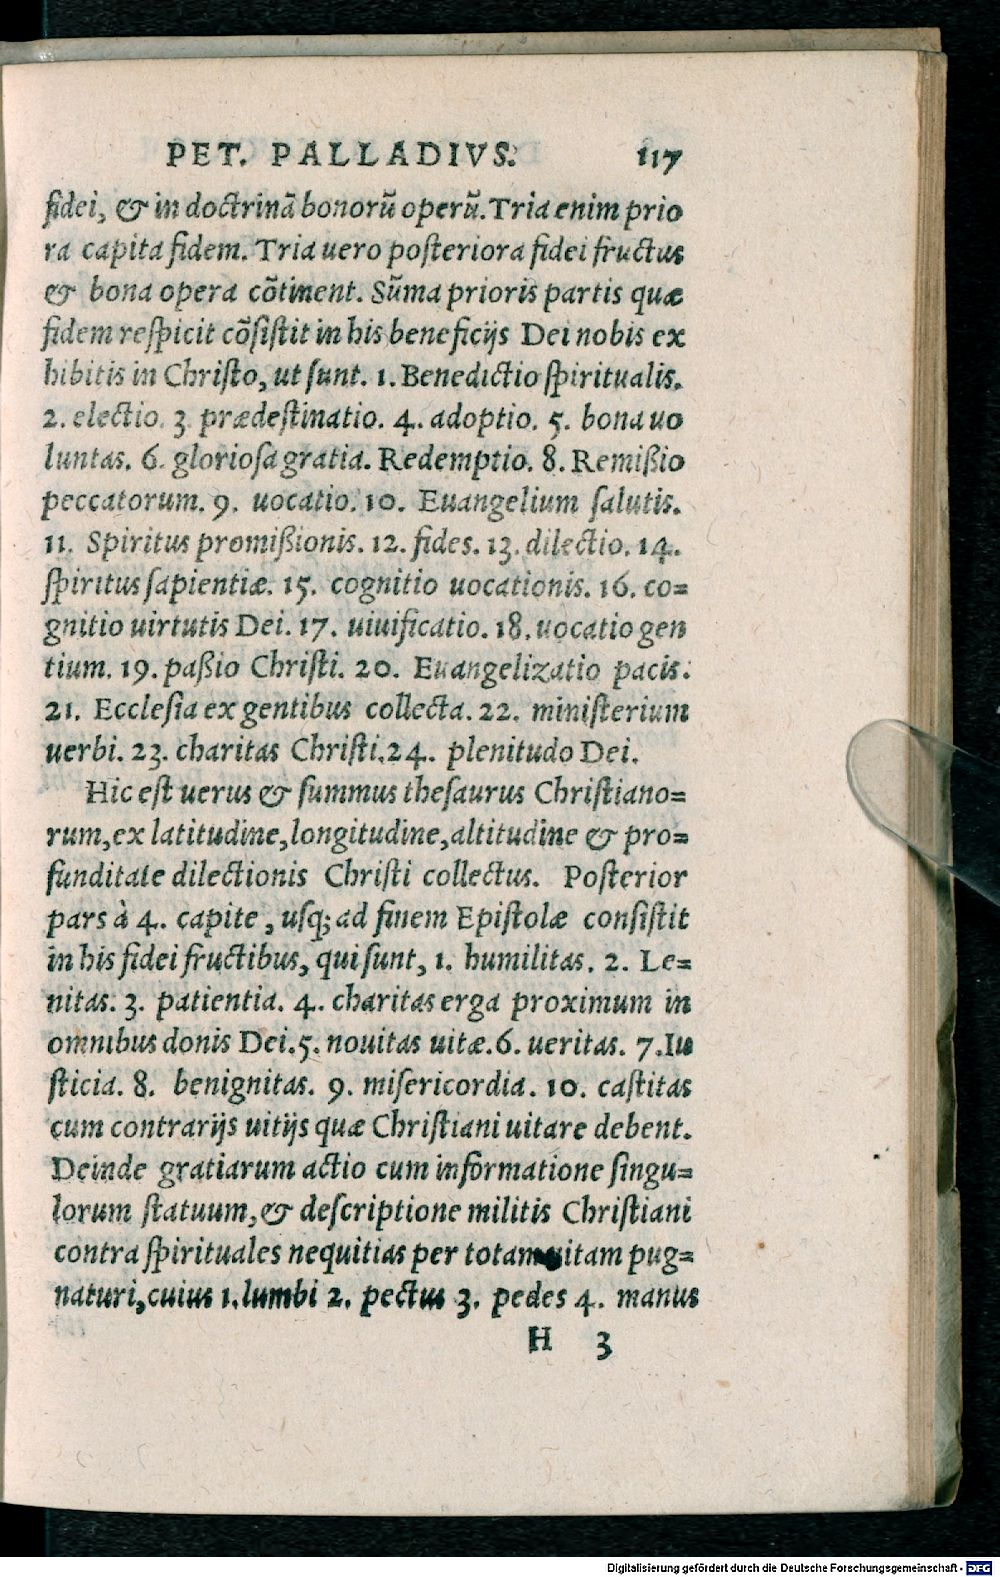 PET. PALLADIVS. 117
fidei, & in doctrinā bonorū operū. Tria enim prio
ra capita fidem. Tria uero posteriora fidei fructus
& bona opera cōtinent. Sūma prioris partis quæ
fidem respicit cōsistit in his beneficijs Dei nobis ex
hibitis in Christo, ut sunt. 1. Benedictio spiritualis.
2. electio. 3. prædestinatio. 4. adoptio. 5. bona uo
luntas. 6. gloriosa gratia. Redemptio. 8. Remißio
peccatorum. 9. uocatio. 10. Euangelium salutis.
11. Spiritus promißionis. 12. fides. 13. dilectio. 14.
spiritus sapientiæ. 15. cognitio uocationis. 16. co=
gnitio uirtutis Dei. 17. uiuificatio. 18. uocatio gen
tium. 19. paßio Christi. 20. Euangelizatio pacis.
21. Ecclesia ex gentibus collecta. 22. ministerium
uerbi. 23. charitas Christi. 24. plenitudo Dei.
Hic est uerus & summus thesaurus Christiano=
rum, ex latitudine, longitudine, altitudine & pro=
funditate dilectionis Christi collectus. Posterior
pars à 4. capite, usq; ad finem Epistolæ consistit
in his fidei fructibus, qui sunt, 1. humilitas. 2. Le=
nitas. 3. patientia. 4. charitas erga proximum in
omnibus donis Dei. 5. nouitas uitæ. 6. ueritas. 7. Iu
sticia. 8. benignitas. 9. misericordia. 10. castitas
cum contrarijs uitijs quæ Christiani uitare debent.
Deinde gratiarum actio cum informatione singu=
lorum statuum, & descriptione militis Christiani
contra spirituales nequitias per totam uitam pug=
naturi, cuius 1. lumbi 2. pectus 3. pedes 4. manus
H 3
Digitalisierung gefördert durch die Deutsche Forschungsgemeinschaft - DFG